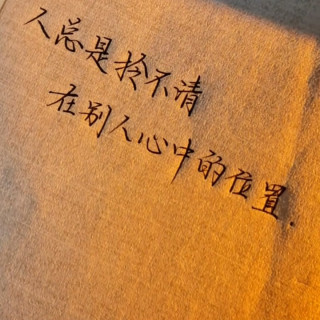 人总是拎不清
在别人心中的位置.